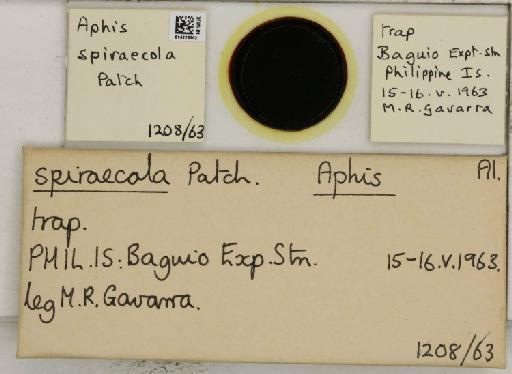 Aphis
spiraecola
Patch
1208/63
trap
Baguio Expt. Stn
Philippine Is.
15-16.V.1963
M.R. Gavarra
spiraecola Patch. Aphis Al.
trap.
PHIL.IS: Baguio Exp. Stn. 15-16.V.1963.
leg M.R. Gavarra.
1208/63